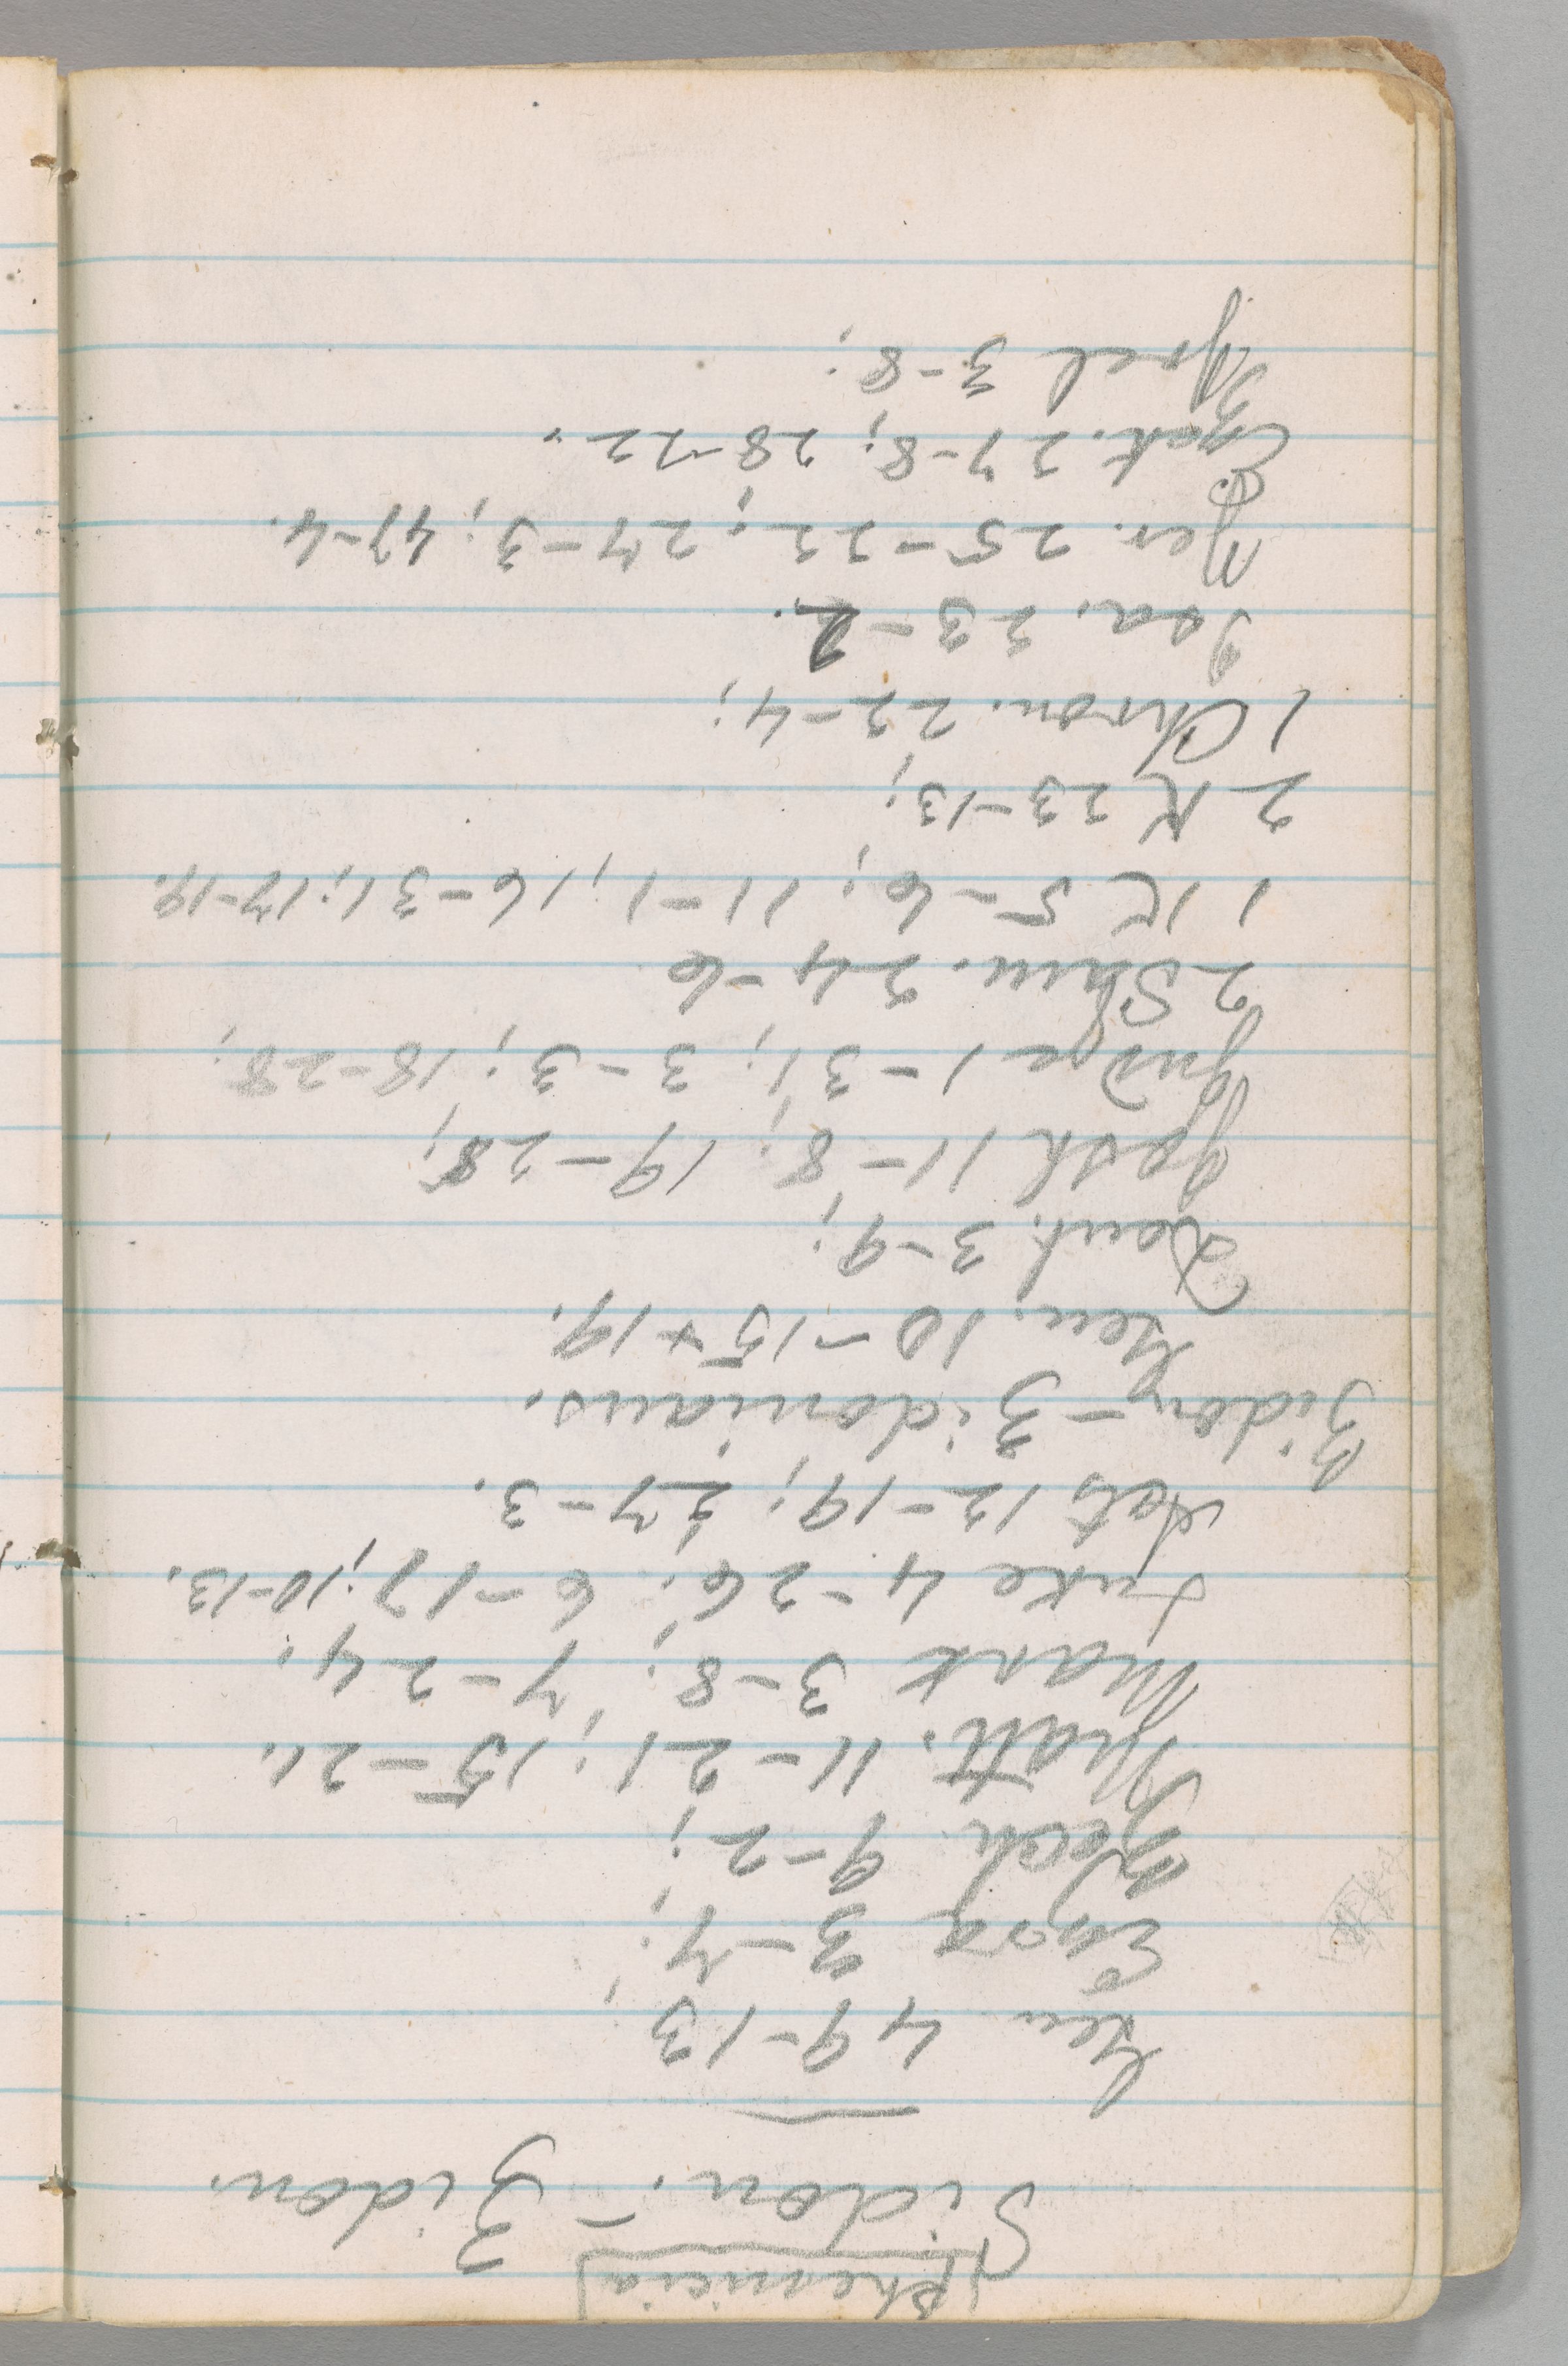 [Phoenicia]
Sidon. - Zidon.
Gen 49-13;
Ezra 3-7;
Zech. 9-2;
Matt. 11-21; 15-21.
Mark 3-8; 7-24.
Luke 4-26; 6-17; 10-13.
Acts 12-19; 27-3.
Zidon - Zidonians.
Gen. 10-15+19.
Deut. 3-9;
Josh 11-8; 19-28;
Judge 1-31; 3-3; 18-28;
2 Sam. 24-6
1 K 5-6; 11-1; 16-31; 17-19.
2 K 23-13;
1 Chron. 22-4;
Isa. 23-2.
Jer. 25-22; 27-3; 47-4.
Ezek. 27-8; 28-22.
Joel 3-8;